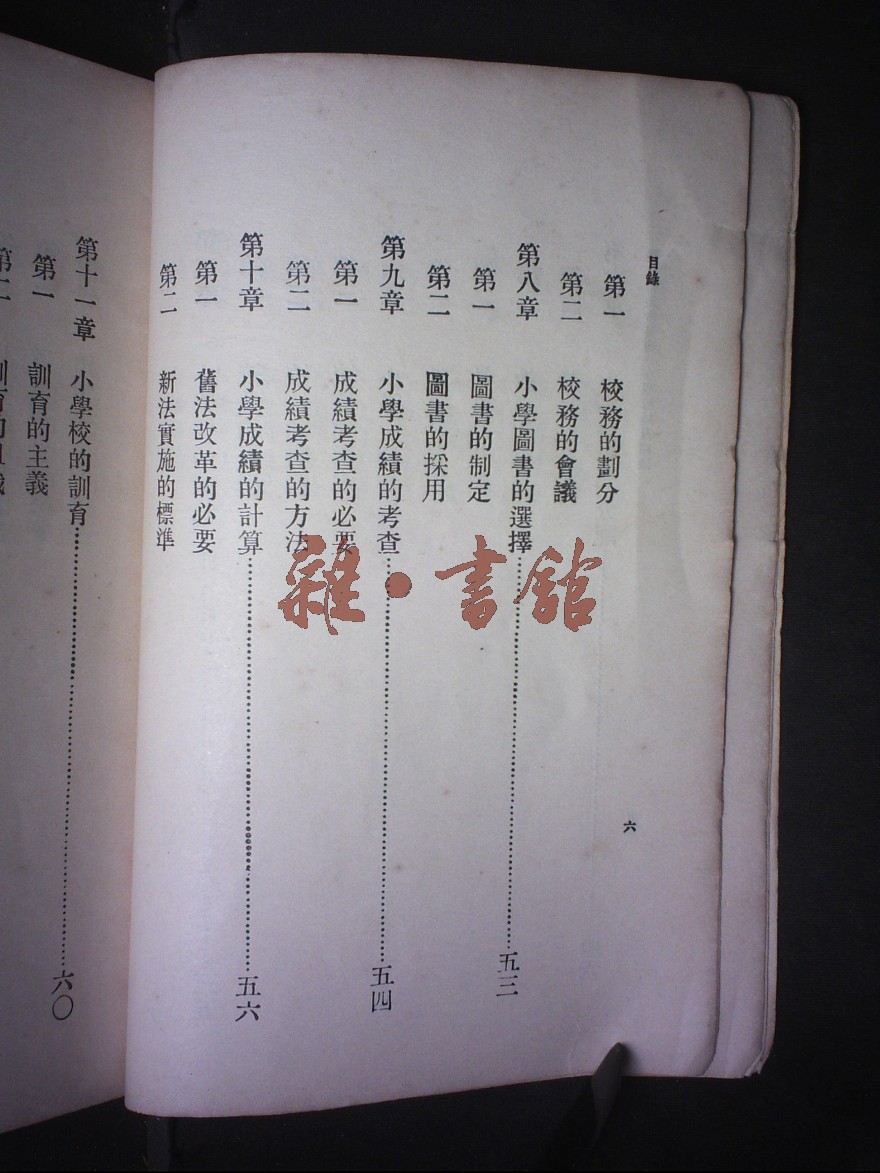 目錄
六
第一 校務的劃分
第二 校務的會議
第八章 小學圖書的選擇……五三
第一 圖書的制定
第二 圖書的採用
第九章 小學成績的考查……五四
第一 成績考查的必要
第二 成績考查的方法
第十章 小學成績的計算……五六
第一 舊法改革的必要
第二 新法實施的標準
第十一章 小學校的訓育……六〇
第一 訓育的主義
雜·書館